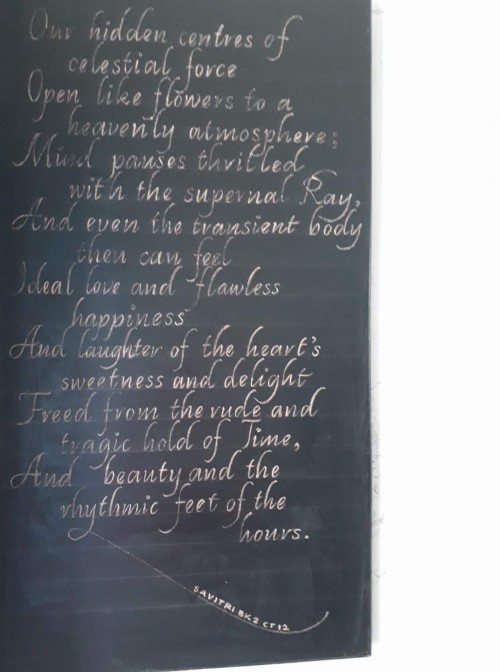 Our hidden centres of
celestial force
Open like flowers to a
heavenly atmosphere;
Mind pauses thrilled
with the supernal Ray,
And even the transient body
then can feel
Ideal love and flawless
happiness
And laughter of the heart's
sweetness and delight
Freed from the rude and
tragic hold of Time,
And beauty and the
rhythmic feet of the
hours.
SAVITRI BK 2 CT 12